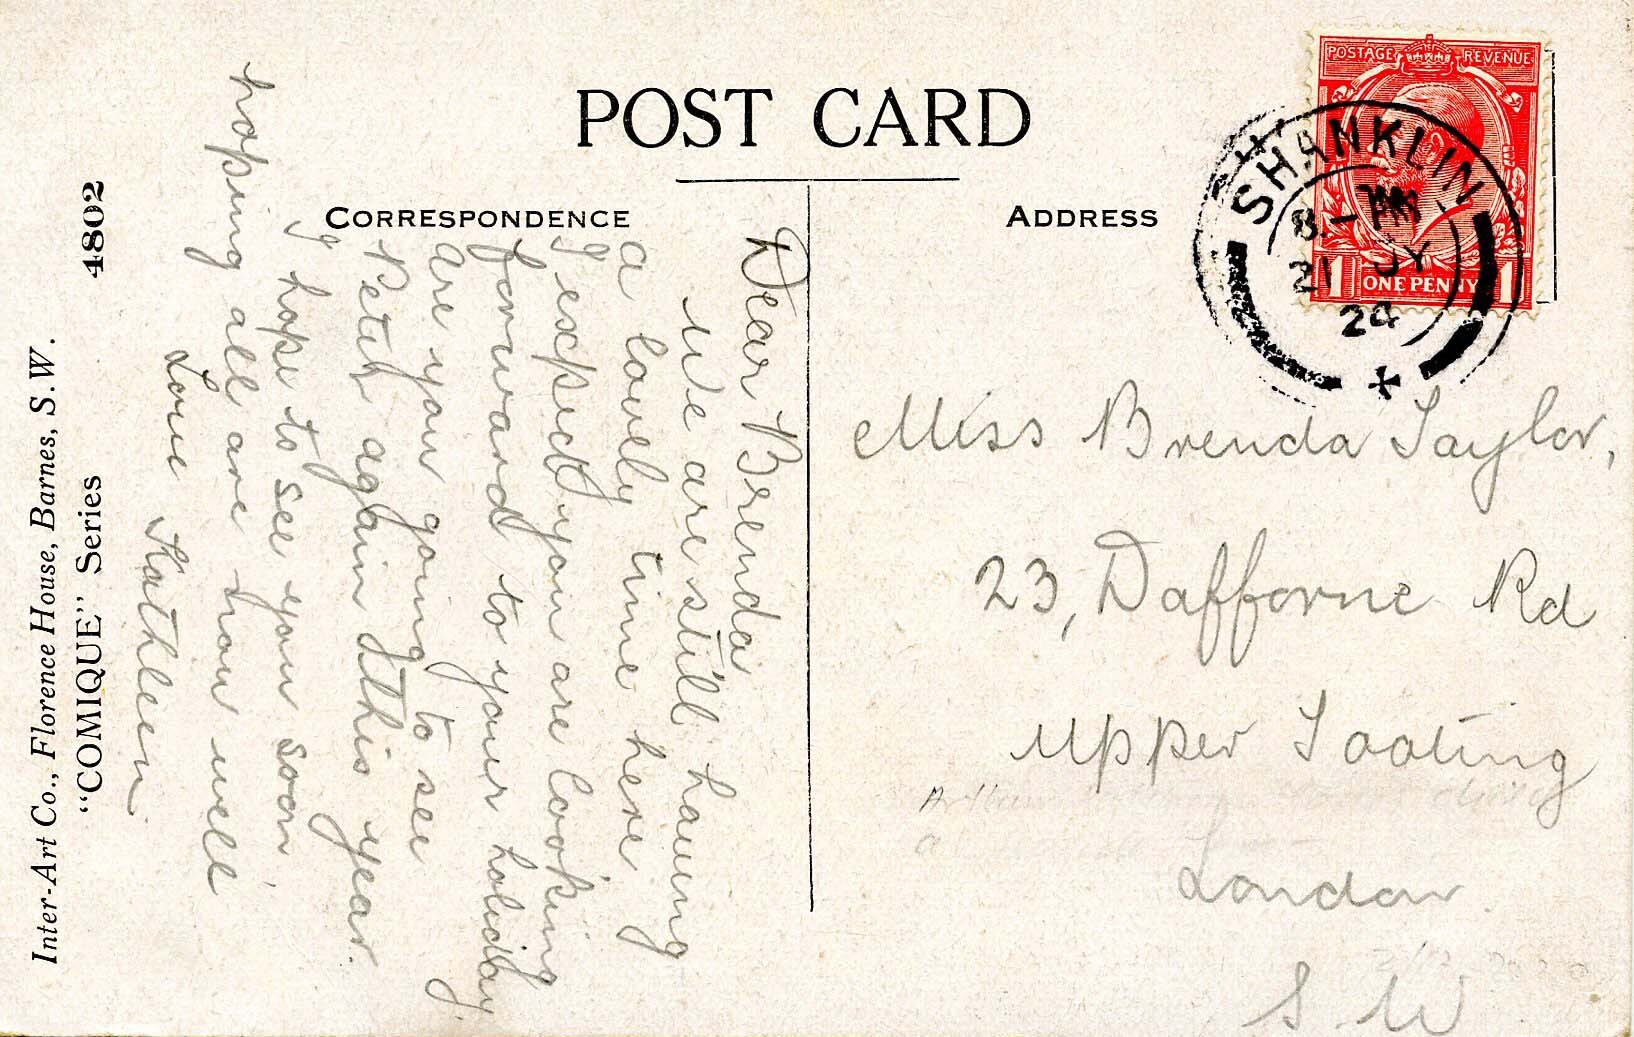 POST CARD
CORRESPONDENCE
ADDRESS
POSTAGE REVENUE
1 ONE PENNY 1
SHANKLIN
21 JY
24
Dear Brenda
We are still having
a lovely time here
I expect you are looking
forward to your holiday.
are you going to see
Peter again this year.
I hope to see you soon,
hoping all are now well
Love Kathleen
Miss Brenda Taylor,
23, Dafforne Rd
Upper Tooting
London.
S.W
Inter-Art Co., Florence House, Barnes, S.W.
"COMIQUE" Series
4802